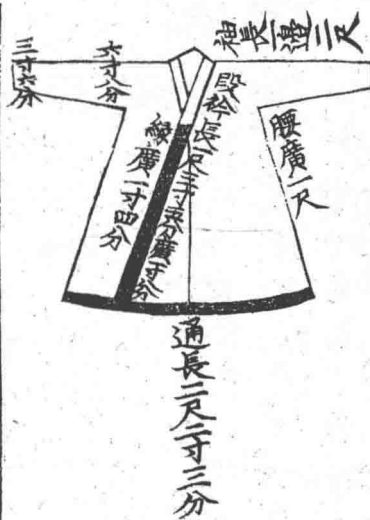 袖長一邊二尺
腰廣一尺
衿長一尺三寸五分廣寸分
緣廣一寸四分
六寸八分
三寸六分
通長二尺二寸三分